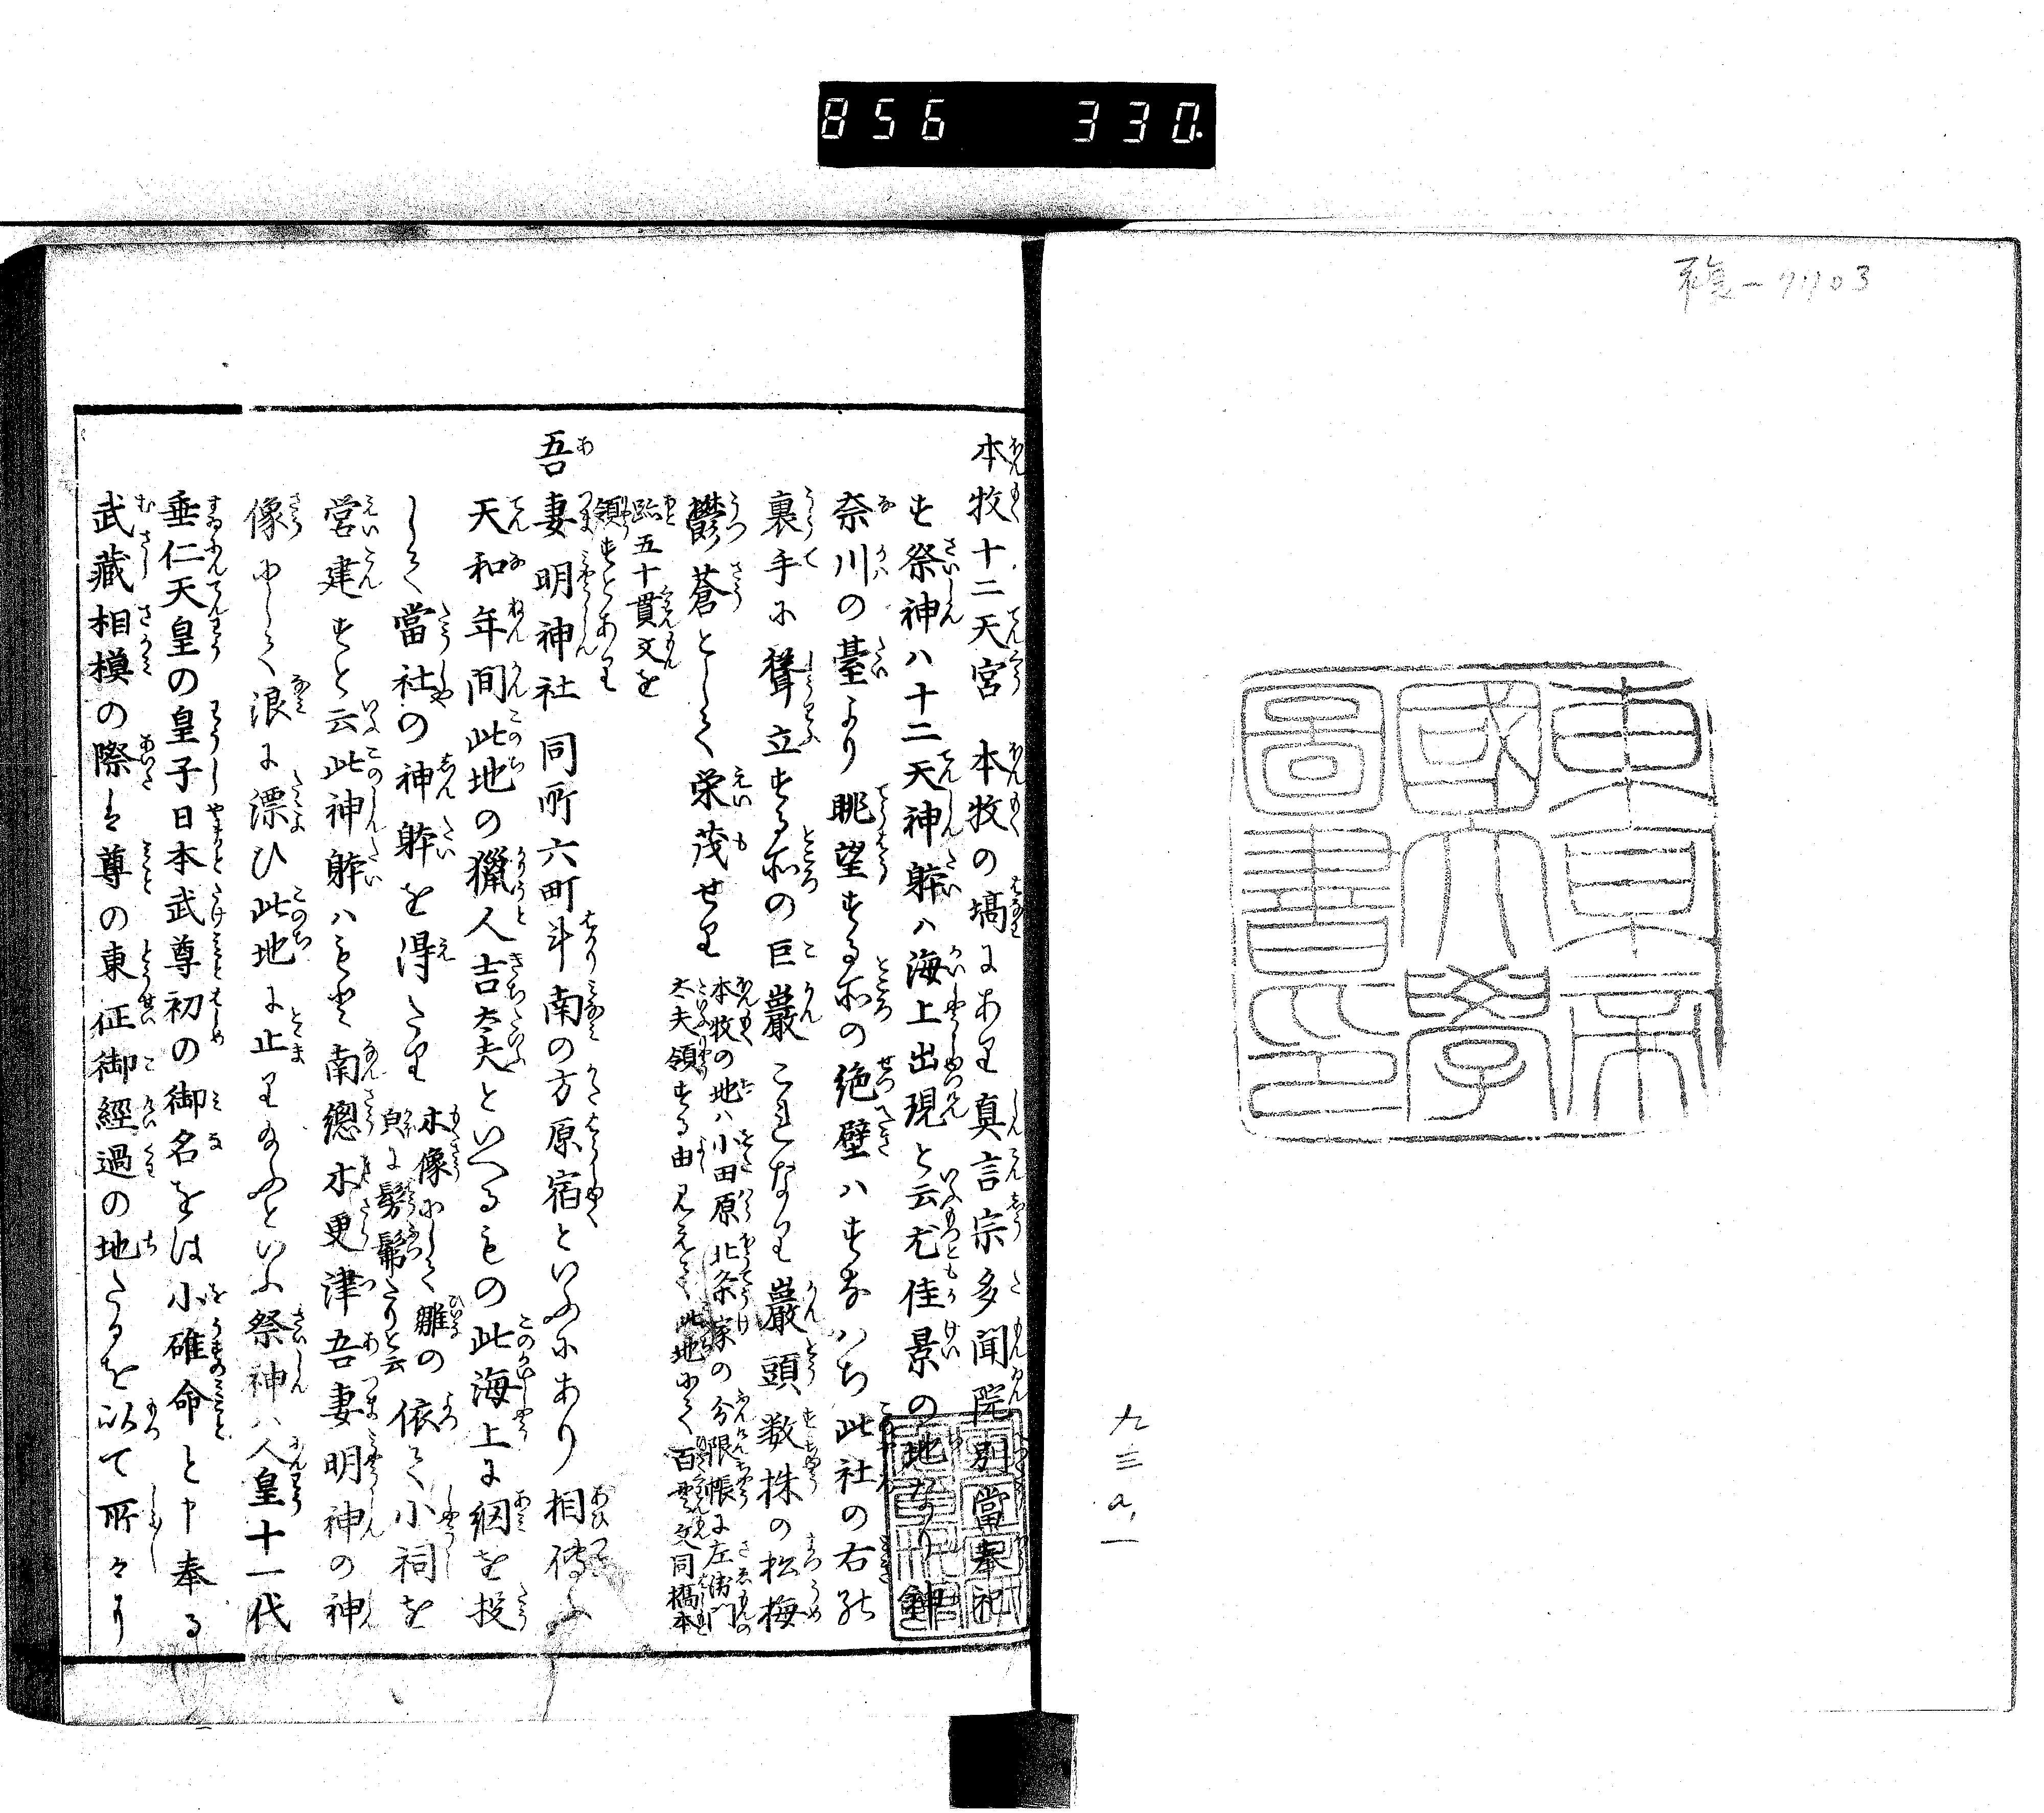 856 330
本牧十二天宮 本牧の塙にあり真言宗多聞院別當奉祀
す祭神ハ十二天神躰ハ海上出現と云尤佳景の地なり神
奈川の臺より眺望する所の絶壁ハすなハち此社の右の
裏手に聳立する所の巨巖これなり巖頭数株の松梅
鬱蒼として栄茂せり
本牧の地ハ小田原北条家の分限帳に左衛門
太夫領する由見えて此地にて百貫文同橋本
跡五十貫文を
領すとあり
吾妻明神社 同所六町斗南の方原宿といふにあり相傳ふ
天和年間此地の獵人吉太夫といへるもの此海上に網を投
して當社の神躰を得たり
木像にして雛の
皃に髣髴たりと云
依て小祠を
営建すと云此神躰ハもと南總木更津吾妻明神の神
像にして浪に漂ひ此地に止り給ふといふ祭神ハ人皇十一代
垂仁天皇の皇子日本武尊初の御名をは小碓命と申奉る
武藏相模の際は尊の東征御經過の地たるを以て所々に
東京帝
國大學
圖書印